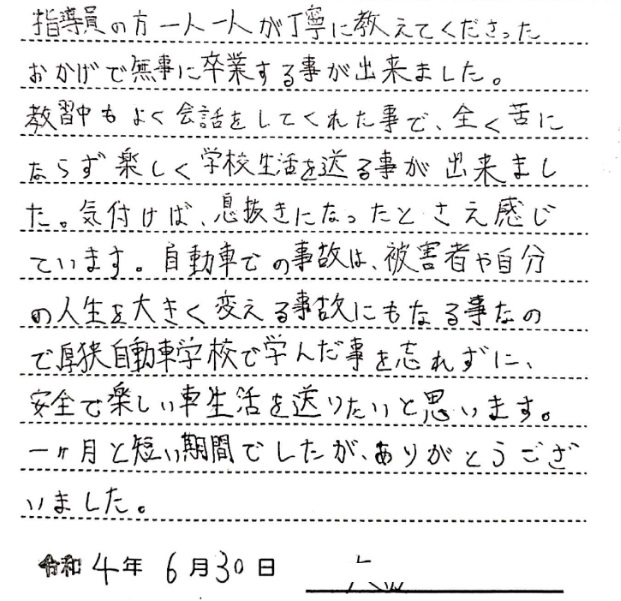 指導員の方一人一人が丁寧に教えてくださった
おかげで無事に卒業する事が出来ました。
教習中もよく会話をしてくれた事で、全く苦に
ならず楽しく学校生活を送る事が出来まし
た。気付けば、息抜きになったとさえ感じ
ています。自動車での事故は、被害者や自分
の人生を大きく変える事故にもなる事なの
で厚狭自動車学校で学んだ事を忘れずに、
安全で楽しい車生活を送りたいと思います。
一ヶ月と短い期間でしたが、ありがとうござ
いました。
令和4年 6月30日